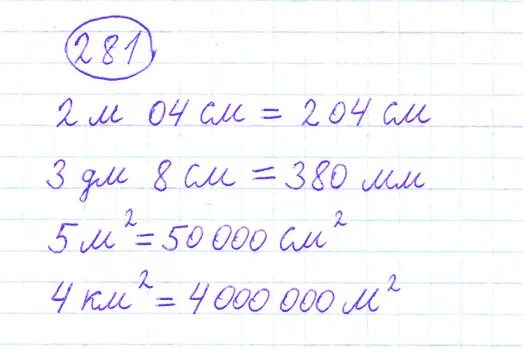 281
2 м 04 см = 204 см
3 дм 8 см = 380 мм
5 м² = 50 000 см²
4 км² = 4 000 000 м²